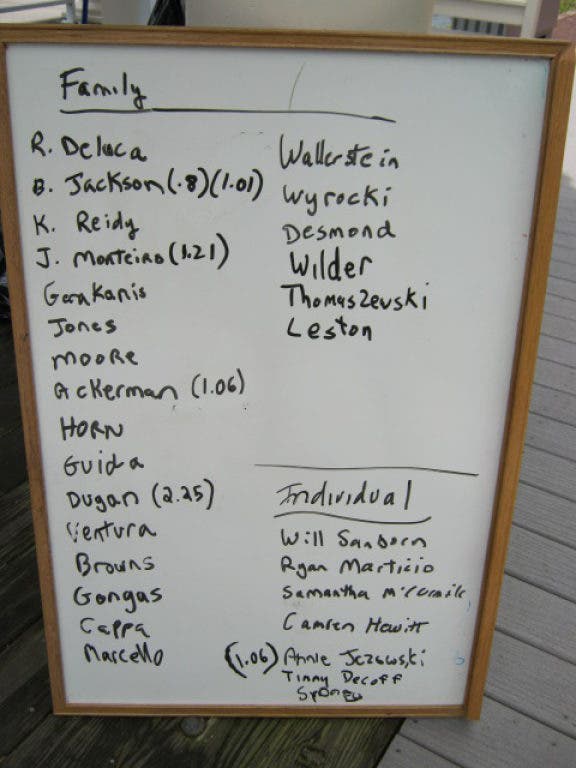 Family
R. Deluca
B. Jackson (.8) (1.01)
K. Reidy
J. Monteiro (1.21)
Gerakanis
Jones
Moore
Ackerman (1.06)
HORN
Guida
Dugan (2.25)
Ventura
Browns
Gongas
Cappa
Marcello
Wallerstein
Wyrocki
Desmond
Wilder
Thomaszewski
Leston
Individual
Will Sanborn
Ryan Marticio
Samantha
Camren Hewitt
(1.06) Annie
Timmy Decoff
Sydney